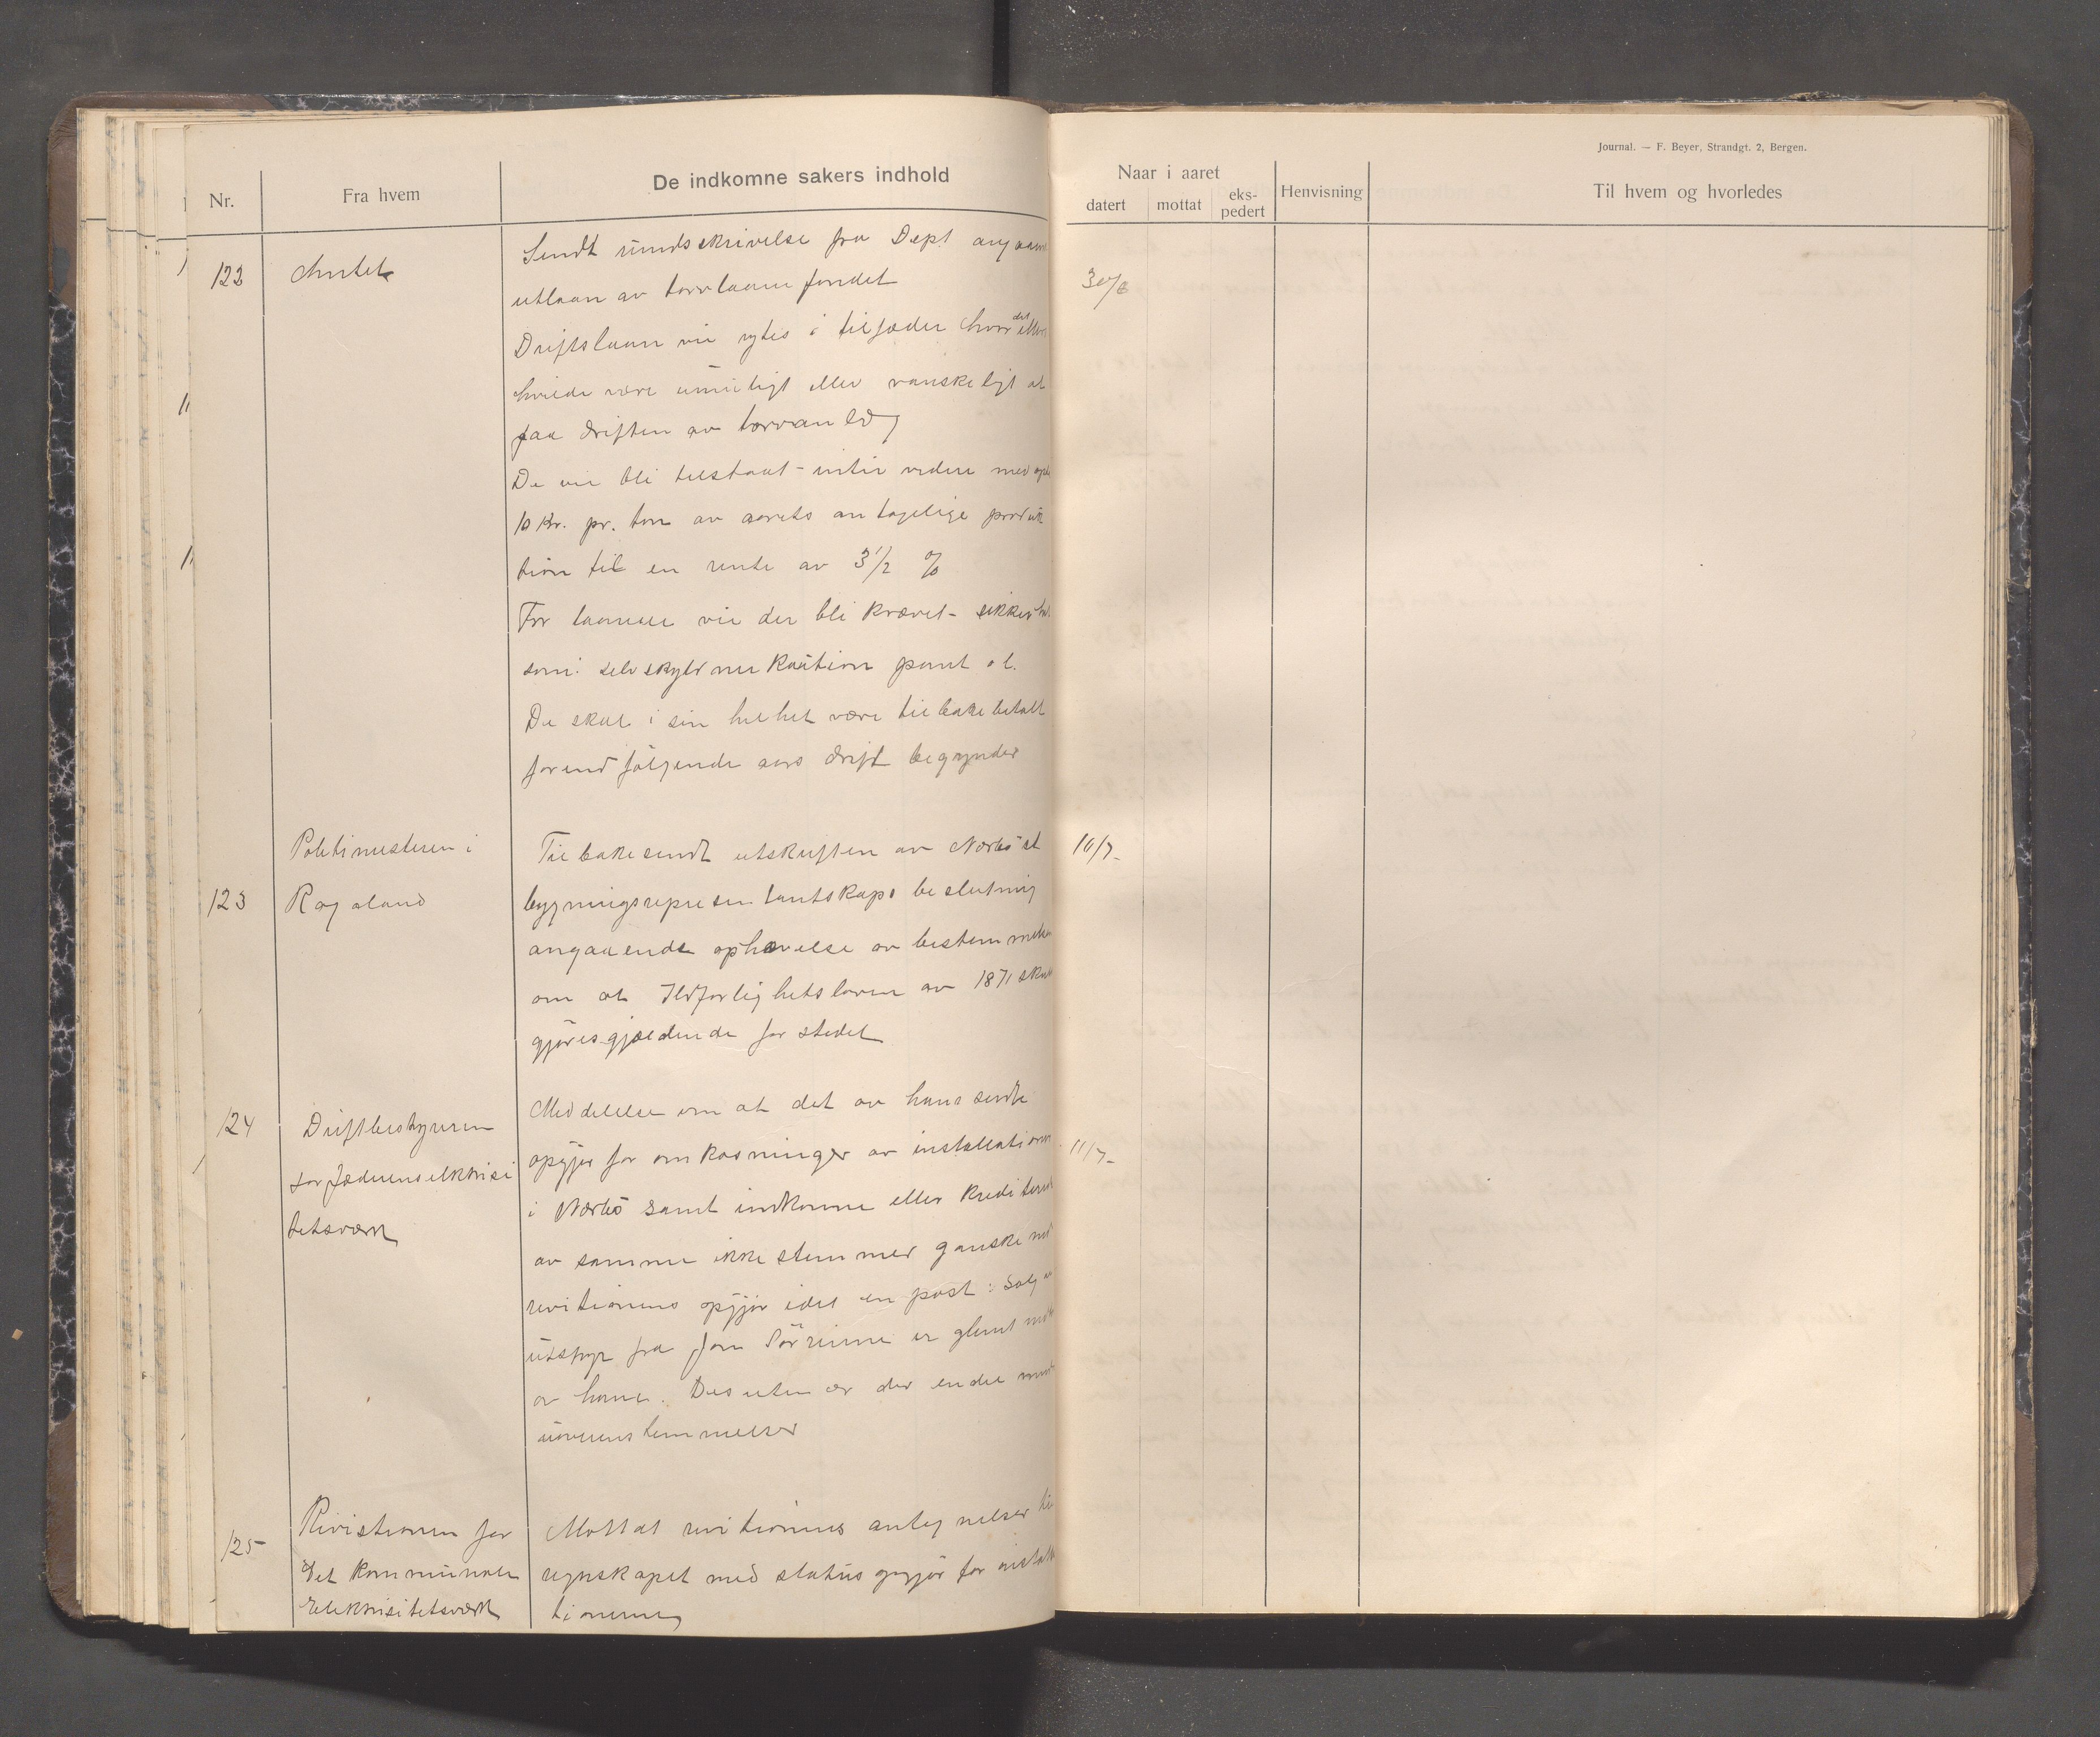 Journal. — F. Beyer, Strandgt. 2, Bergen.
Nr.
Fra hvem
De indkomne sakers indhold
Naar i aaret
datert
mottat
eks-
pedert
Henvisning
Til hvem og hvorledes
122
Amtet
30/6
Sendt rundskrivelse fra Dept
utlaan av torvlaane fondet
Driftslaan vil ytes i tilfælder hvor det ellers
vilde være umuligt eller vanskeligt at
faa driften av torvanlæg
De vil bli tilstaat indtil videre med
10 Kr. pr. ton av aarets antagelige produk
tion til en rente av 3 1/2 %
For laanene vil der bli krævet sikkerhet
som selvskyldner kaution pant ol.
De skal i sin helhet være tilbakebetalt
forend følgende aars drift begynder
123
Politimesteren i
Rogaland
10/7
Tilbakesendt utskriften av Nærbö st
bygningsrepresentantskaps beslutning
angaaende ophævelse av bestemmelsen
om at Ildfarlighetsloven av 1871 skal
gjøres gjældende for stedet
124
Driftbestyreren
for Jæderens elektrisi
tetsverk
11/7
Meddelelse om at det av ham sendte
opgjør for omkostninger av installationen
i Nærbö samt indkomne eller krediteret
av samme ikke stemmer ganske med
revitionens opgjør idet en post: Salg av
utstyr fra Jon er glemt
av ham. Desuten er der en del
uoverenstemmelser
125
Revisionen for
Det kommunale
Elektrisitetsverk
Mottat revitionens antegnelser til
regnskapet med status opgjør for installa
tionerne